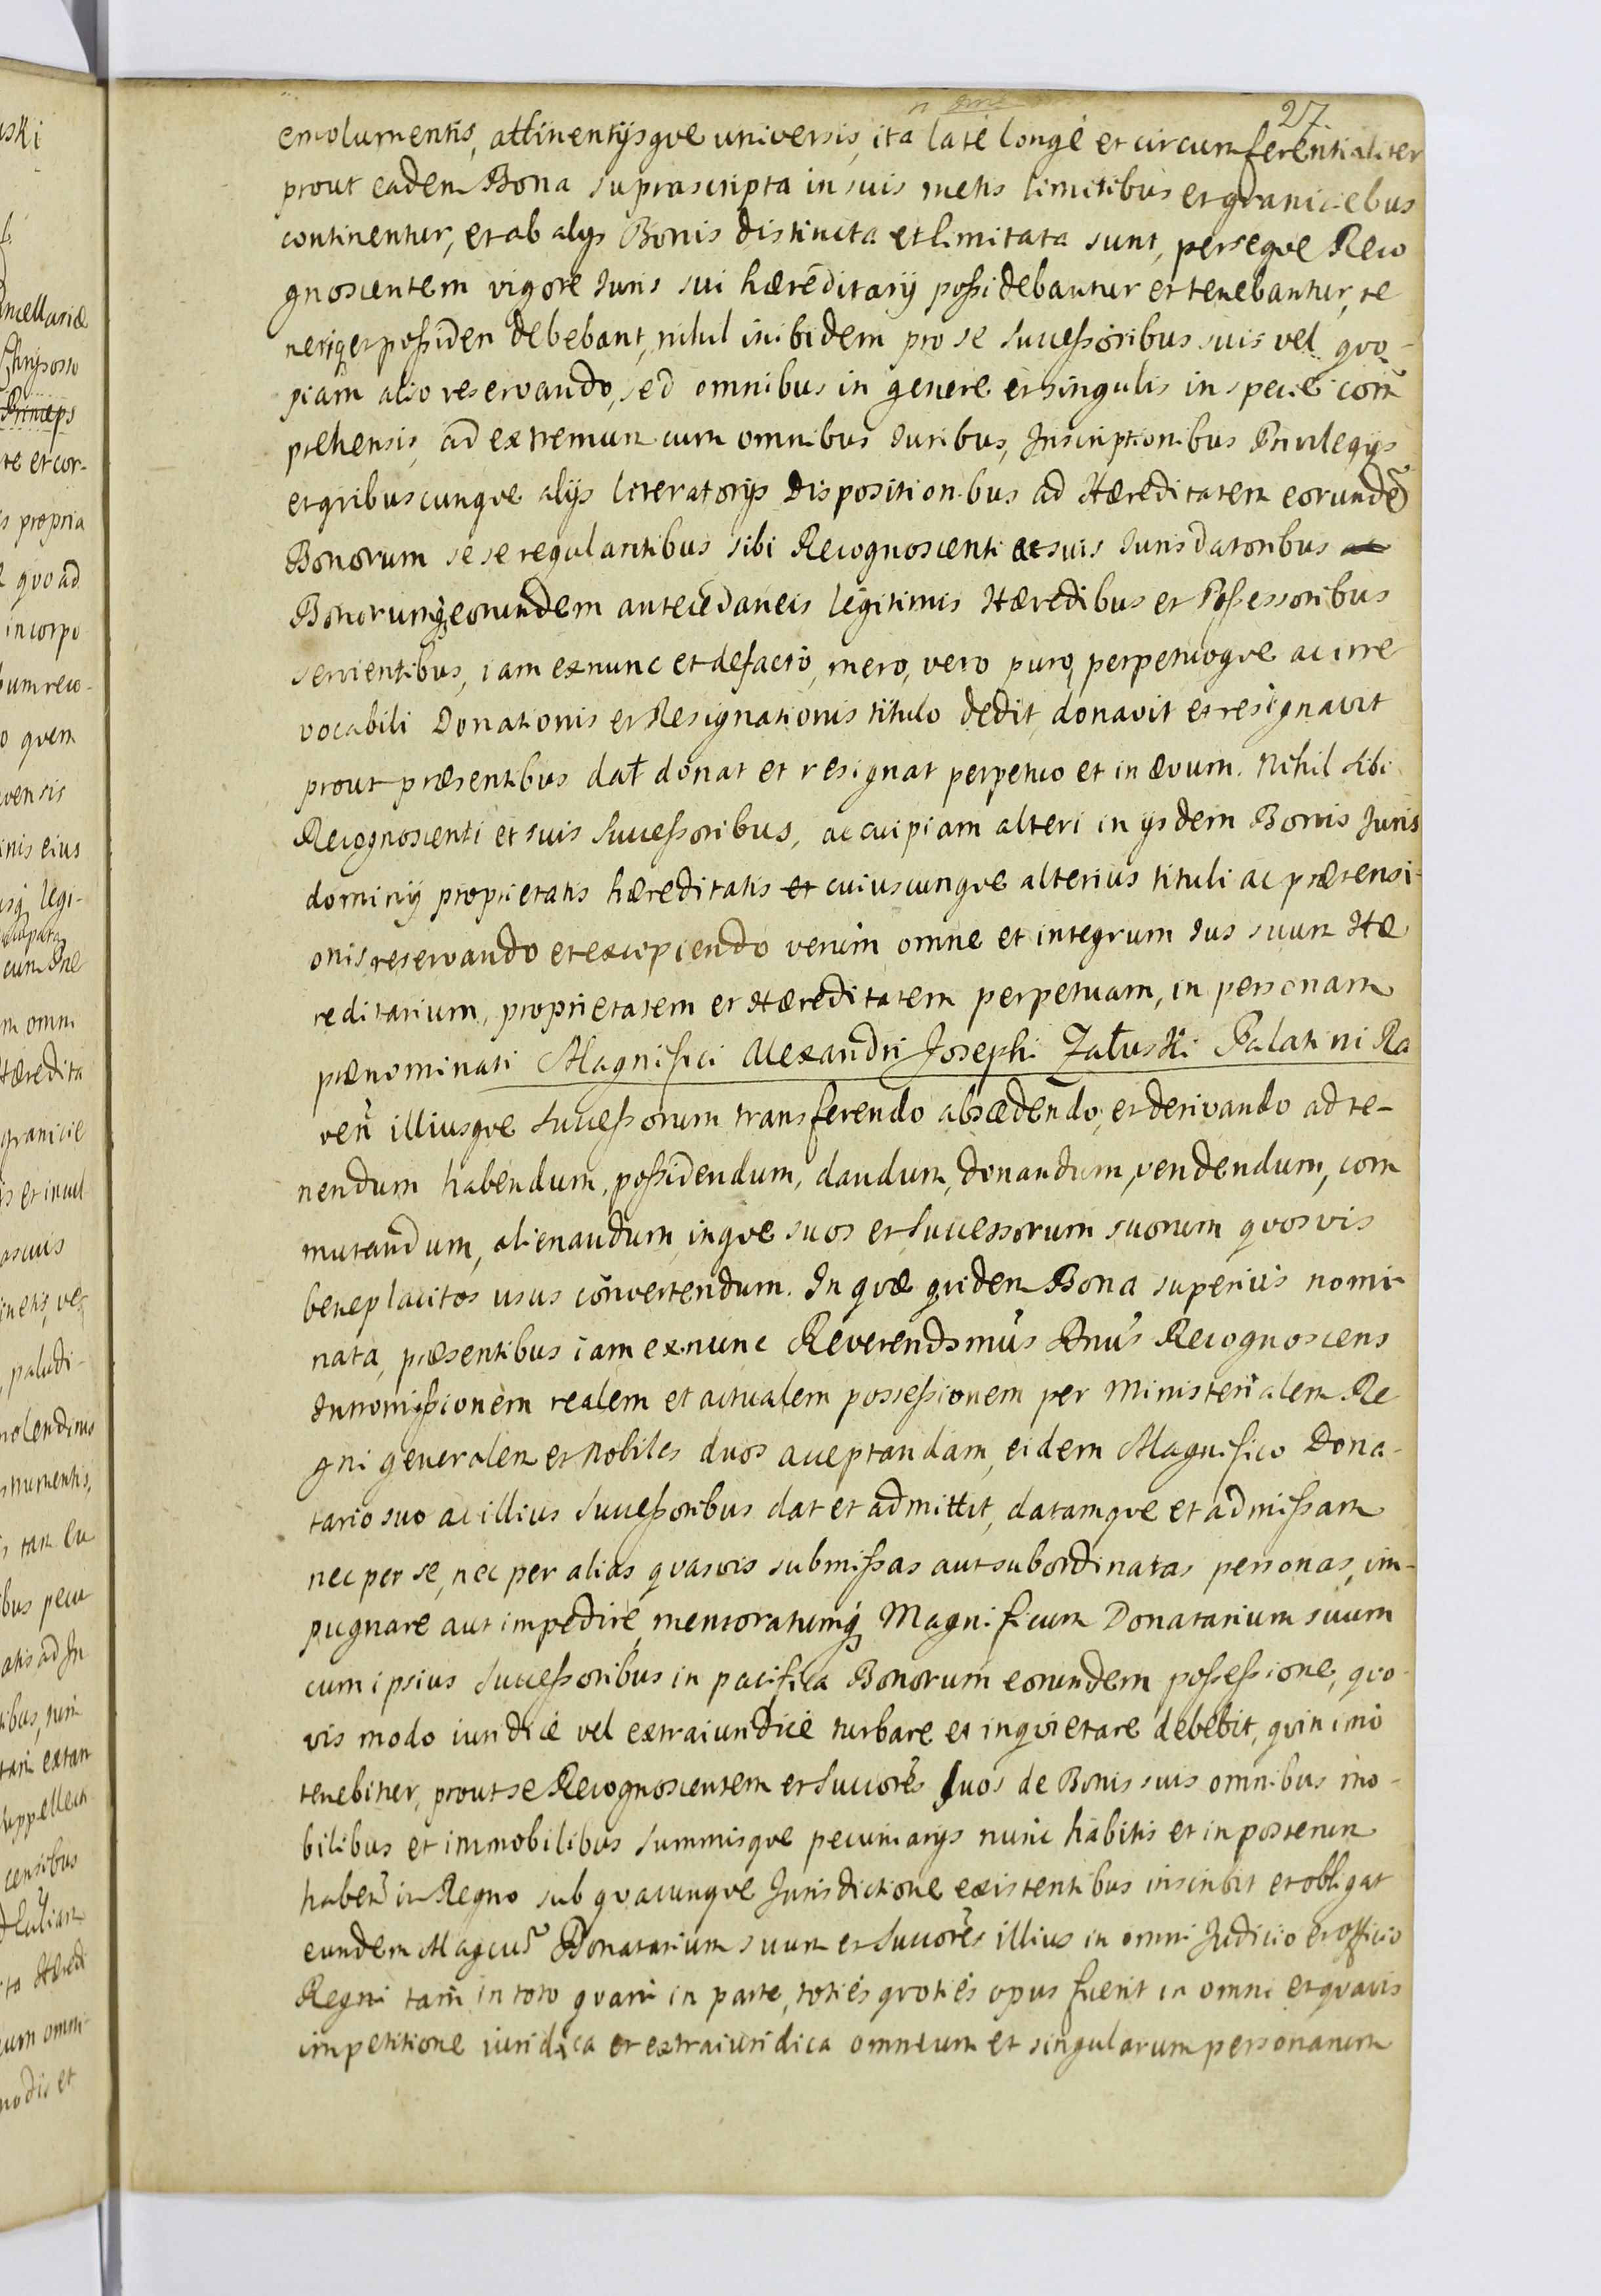 27.
emolumentis, attinentijsqve universis, ita laté longé et circumferentialiter
prout eadem Bona suprascripta in suis metis limitibus et graniciebus
continentur, et ab alijs Bonis distincta et limitata sunt, perseqve Reco
gnoscentem vigore Juris sui hæreditarij poßidebantur et tenebantur, te
neriq et poßideri debebant, nihil inibidem pro se Succeßoribus suis vel qvo-
piam alio reservando, sed omnibus in genere et singulis in specie com
prehensis, ad extremum cum omnibus Juribus, Inscriptionibus Privilegijs
et qvibuscunqve alijs literatorijs Dispositionibus ad Hæreditatem eorunde͂
Bonorum sese regulantibus sibi Recognoscenti et suis Juris datoribus ac
Bonorumq́ eorundem antecedaneis legitimis Hæredibus et Poßessoribus
servientibus, iam exnunc et defacto, mero, vero puro, perpetuoqve ac irre
vocabili Donationis et Resignationis titulo dedit, donavit et resignavit
prout præsentibus dat donat et resignat perpetuo et in ævum. Nihil sibi
Recognoscenti et suis Succeßoribus, ac cuipiam alteri in ijsdem Bonis Juris
dominij proprietatis hæreditatis et cuiuscunqve alterius tituli ac prætensi-
onis reservando et excipiendo verum omne et integrum Jus suum Hæ
reditarium, proprietatem et Hæreditatem perpetuam, in personam
prænominati Magnifici Alexandri Josephi Załuski Palatini Ra
veñ illiusqve Succeßorum transferendo abscedendo, et derivando ad te-
nendum habendum, poßidendum, dandum, donandum, vendendum, com
mutandum, alienandum, inqve suos et Successorum suorum qvosvis
beneplacitos usus convertendum. In qvæ qvidem Bona superius nomi-
nata, præsentibus iam exnunc Reverendsmus Dnus Recognoscens
Intromißionem realem et actualem posseßionem per Ministerialem Re
gni generalem et Nobiles duos acceptandam, eidem Magnifico Dona-
tario suo ac illius Succeßoribus dat et admittit, datamqve et admißam
nec per se, nec per alias qvasvis submißas aut subordinatas personas, im-
pugnare aut impedire, memoratumq́ Magnificum Donatarium suum
cum ipsius Succeßoribus in pacifica Bonorum eorundem poßeßione, qvo-
vis modo iuridicé vel extraiuridicé turbare et inqvietare debebit, qvin imò
tenebitur, prout se Recognoscentem et Succores suos de Bonis suis omnibus mo-
bilibus et immobilibus Summisqve pecuniarijs nunc habitis et in posterum
haben͂ in Regno sub qvacunqve Jurisdictione existentibus inscribit et obligat
eundem Magcum͂ Donatarium suum et Succores illius in omni Judicio et officio
Regni tam in toto qvam in parte, toties qvoties opus fuerit in omni et qvavis
impetitione iuridica et extraiuridica omnium et singularum personarum